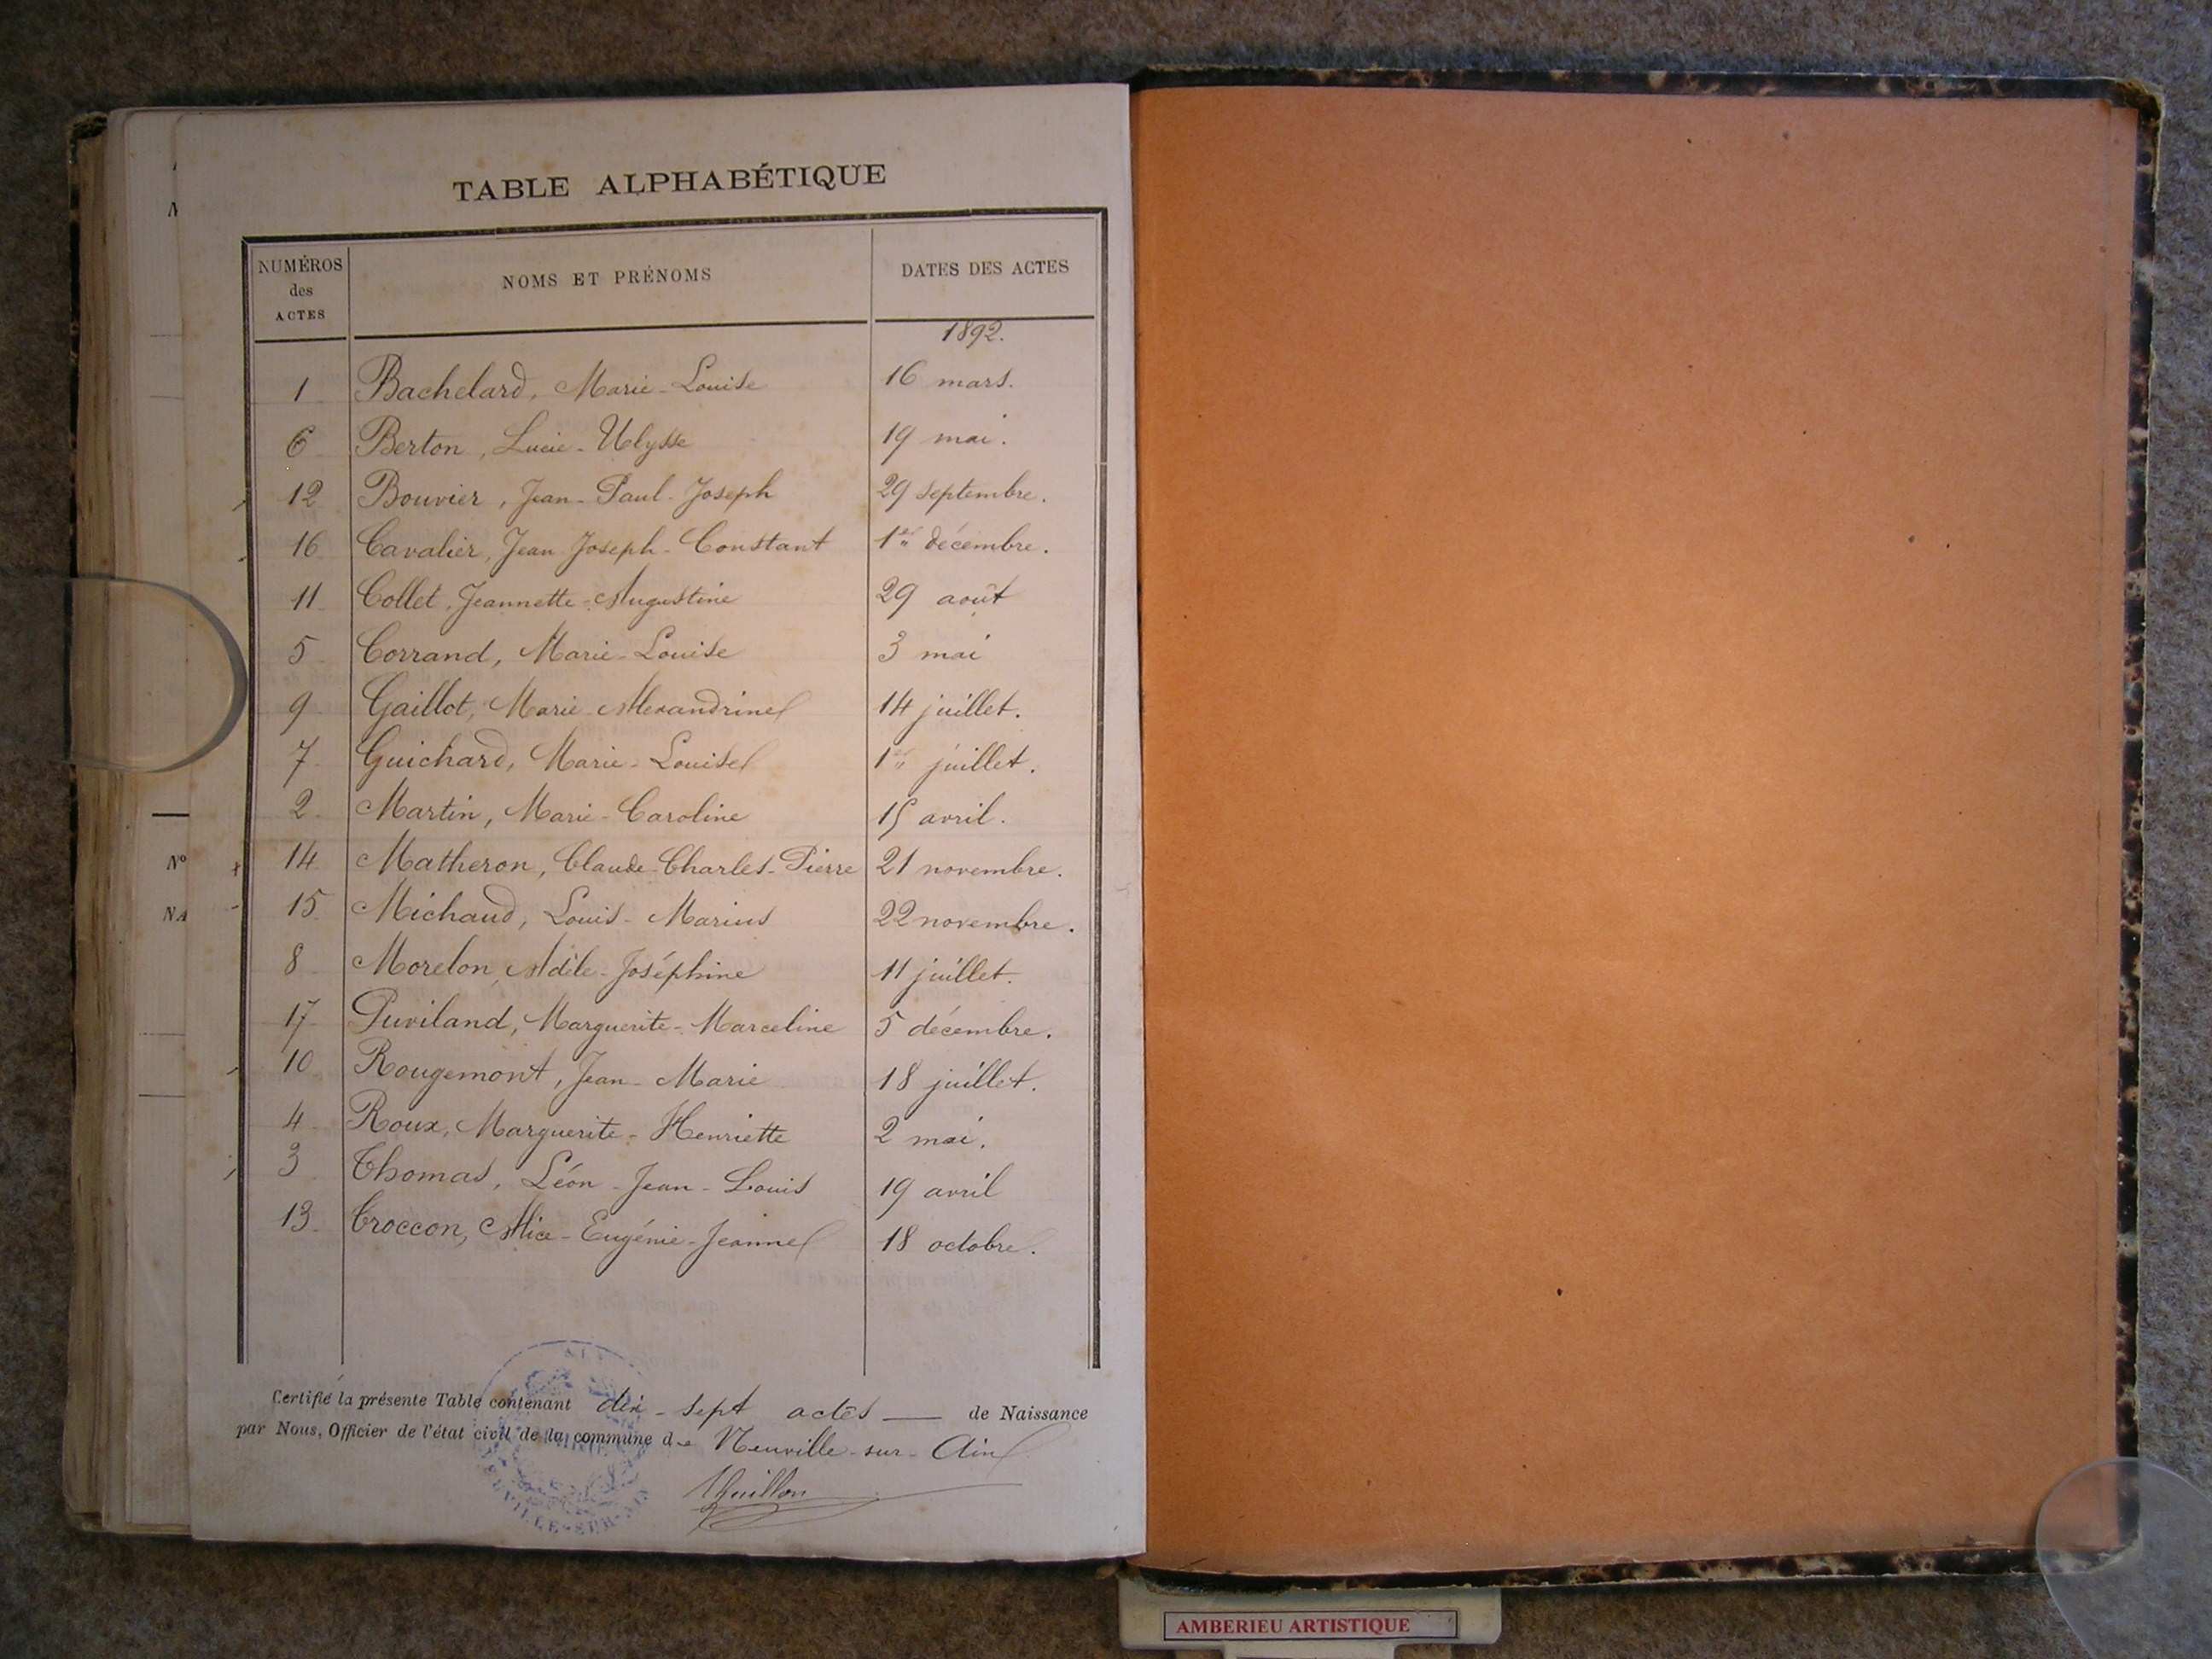 TABLE ALPHABÉTIQUE
NUMÉROS des ACTES NOMS ET PRÉNOMS DATES DES ACTES
1892.
1 Bachelard, Marie-Louise 16 mars.
6 Berton, Lucie-Ulysse 19 mai.
12 Bouvier, Jean-Paul-Joseph 29 septembre.
16 Cavalier, Jean-Joseph-Constant 1er décembre.
11 Collet, Jeannette-Augustine 29 août
5 Corrand, Marie-Louise 3 mai
9 Gaillot, Marie-Alexandrine 14 juillet.
7 Guichard, Marie-Louise 1er juillet.
2 Martin, Marie-Caroline 15 avril.
14 Matheron, Claude-Charles-Pierre 21 novembre.
15 Michaud, Louis-Marius 22 novembre.
8 Morelon, Adèle-Joséphine 11 juillet.
17 Puviland, Marguerite-Marceline 5 décembre.
10 Rougemont, Jean-Marie 18 juillet.
4 Roux, Marguerite-Henriette 2 mai.
3 Thomas, Léon-Jean-Louis 19 avril
13 Troccon, Alice-Eugénie-Jeanne 18 octobre.
Certifié la présente Table contenant dix-sept actes — de Naissance
par Nous, Officier de l'état civil de la commune de Neuville-sur-Ain
NEUVILLE-SUR-AIN
Nº
NA
AMBERIEU ARTISTIQUE